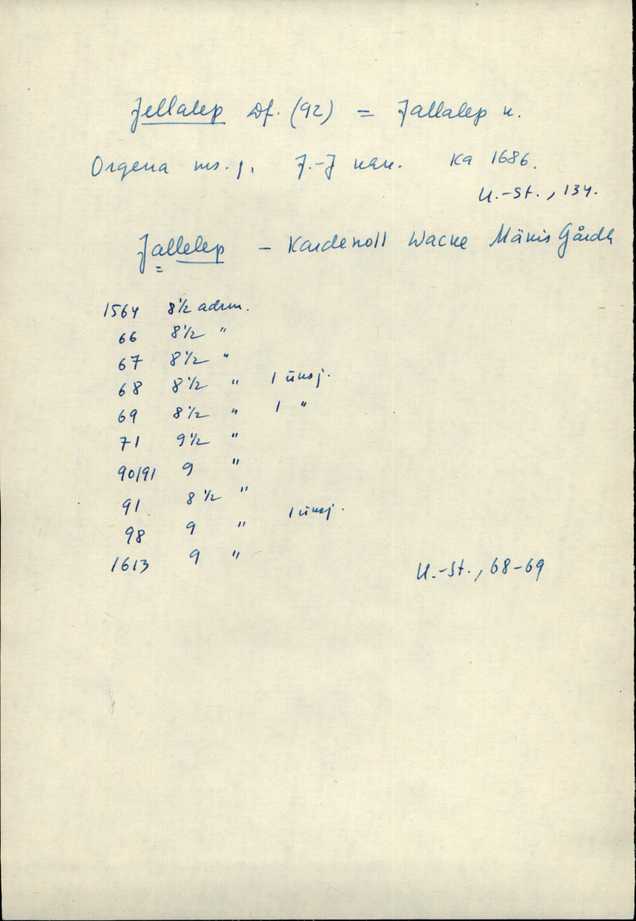 Jellalep Df. (92) = Jallalep k.
Orgena ms. j. J.-J kan. Ka 1686.
U.-St., 134.
Jallelep - Kardenoll Wacke Mäkis Gårdh
1564 8 1/2 adrm.
66 8 1/2 "
67 8 1/2 "
68 8 1/2 " 1 üksj.
69 8 1/2 " 1 "
71 9 1/2 "
90/91 9 "
91 8 1/2 "
98 9 " 1 üksj.
1613 9 "
U.-St., 68-69